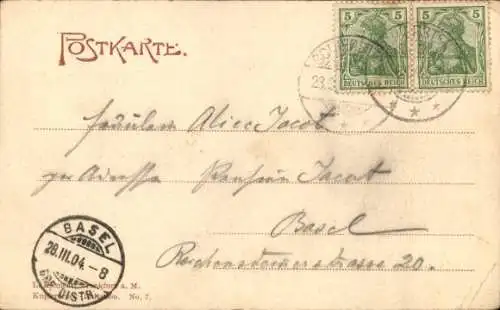 POSTKARTE.
5 5 5 5
DEUTSCHES REICH DEUTSCHES REICH
23.
Fräulein Alice Jacot
per Adresse Pension Jacot
Basel
Reichensteinerstrasse 20.
BASEL
28.III.04. – 8
DISTR.
Frankfurt a. M.
No. 7.